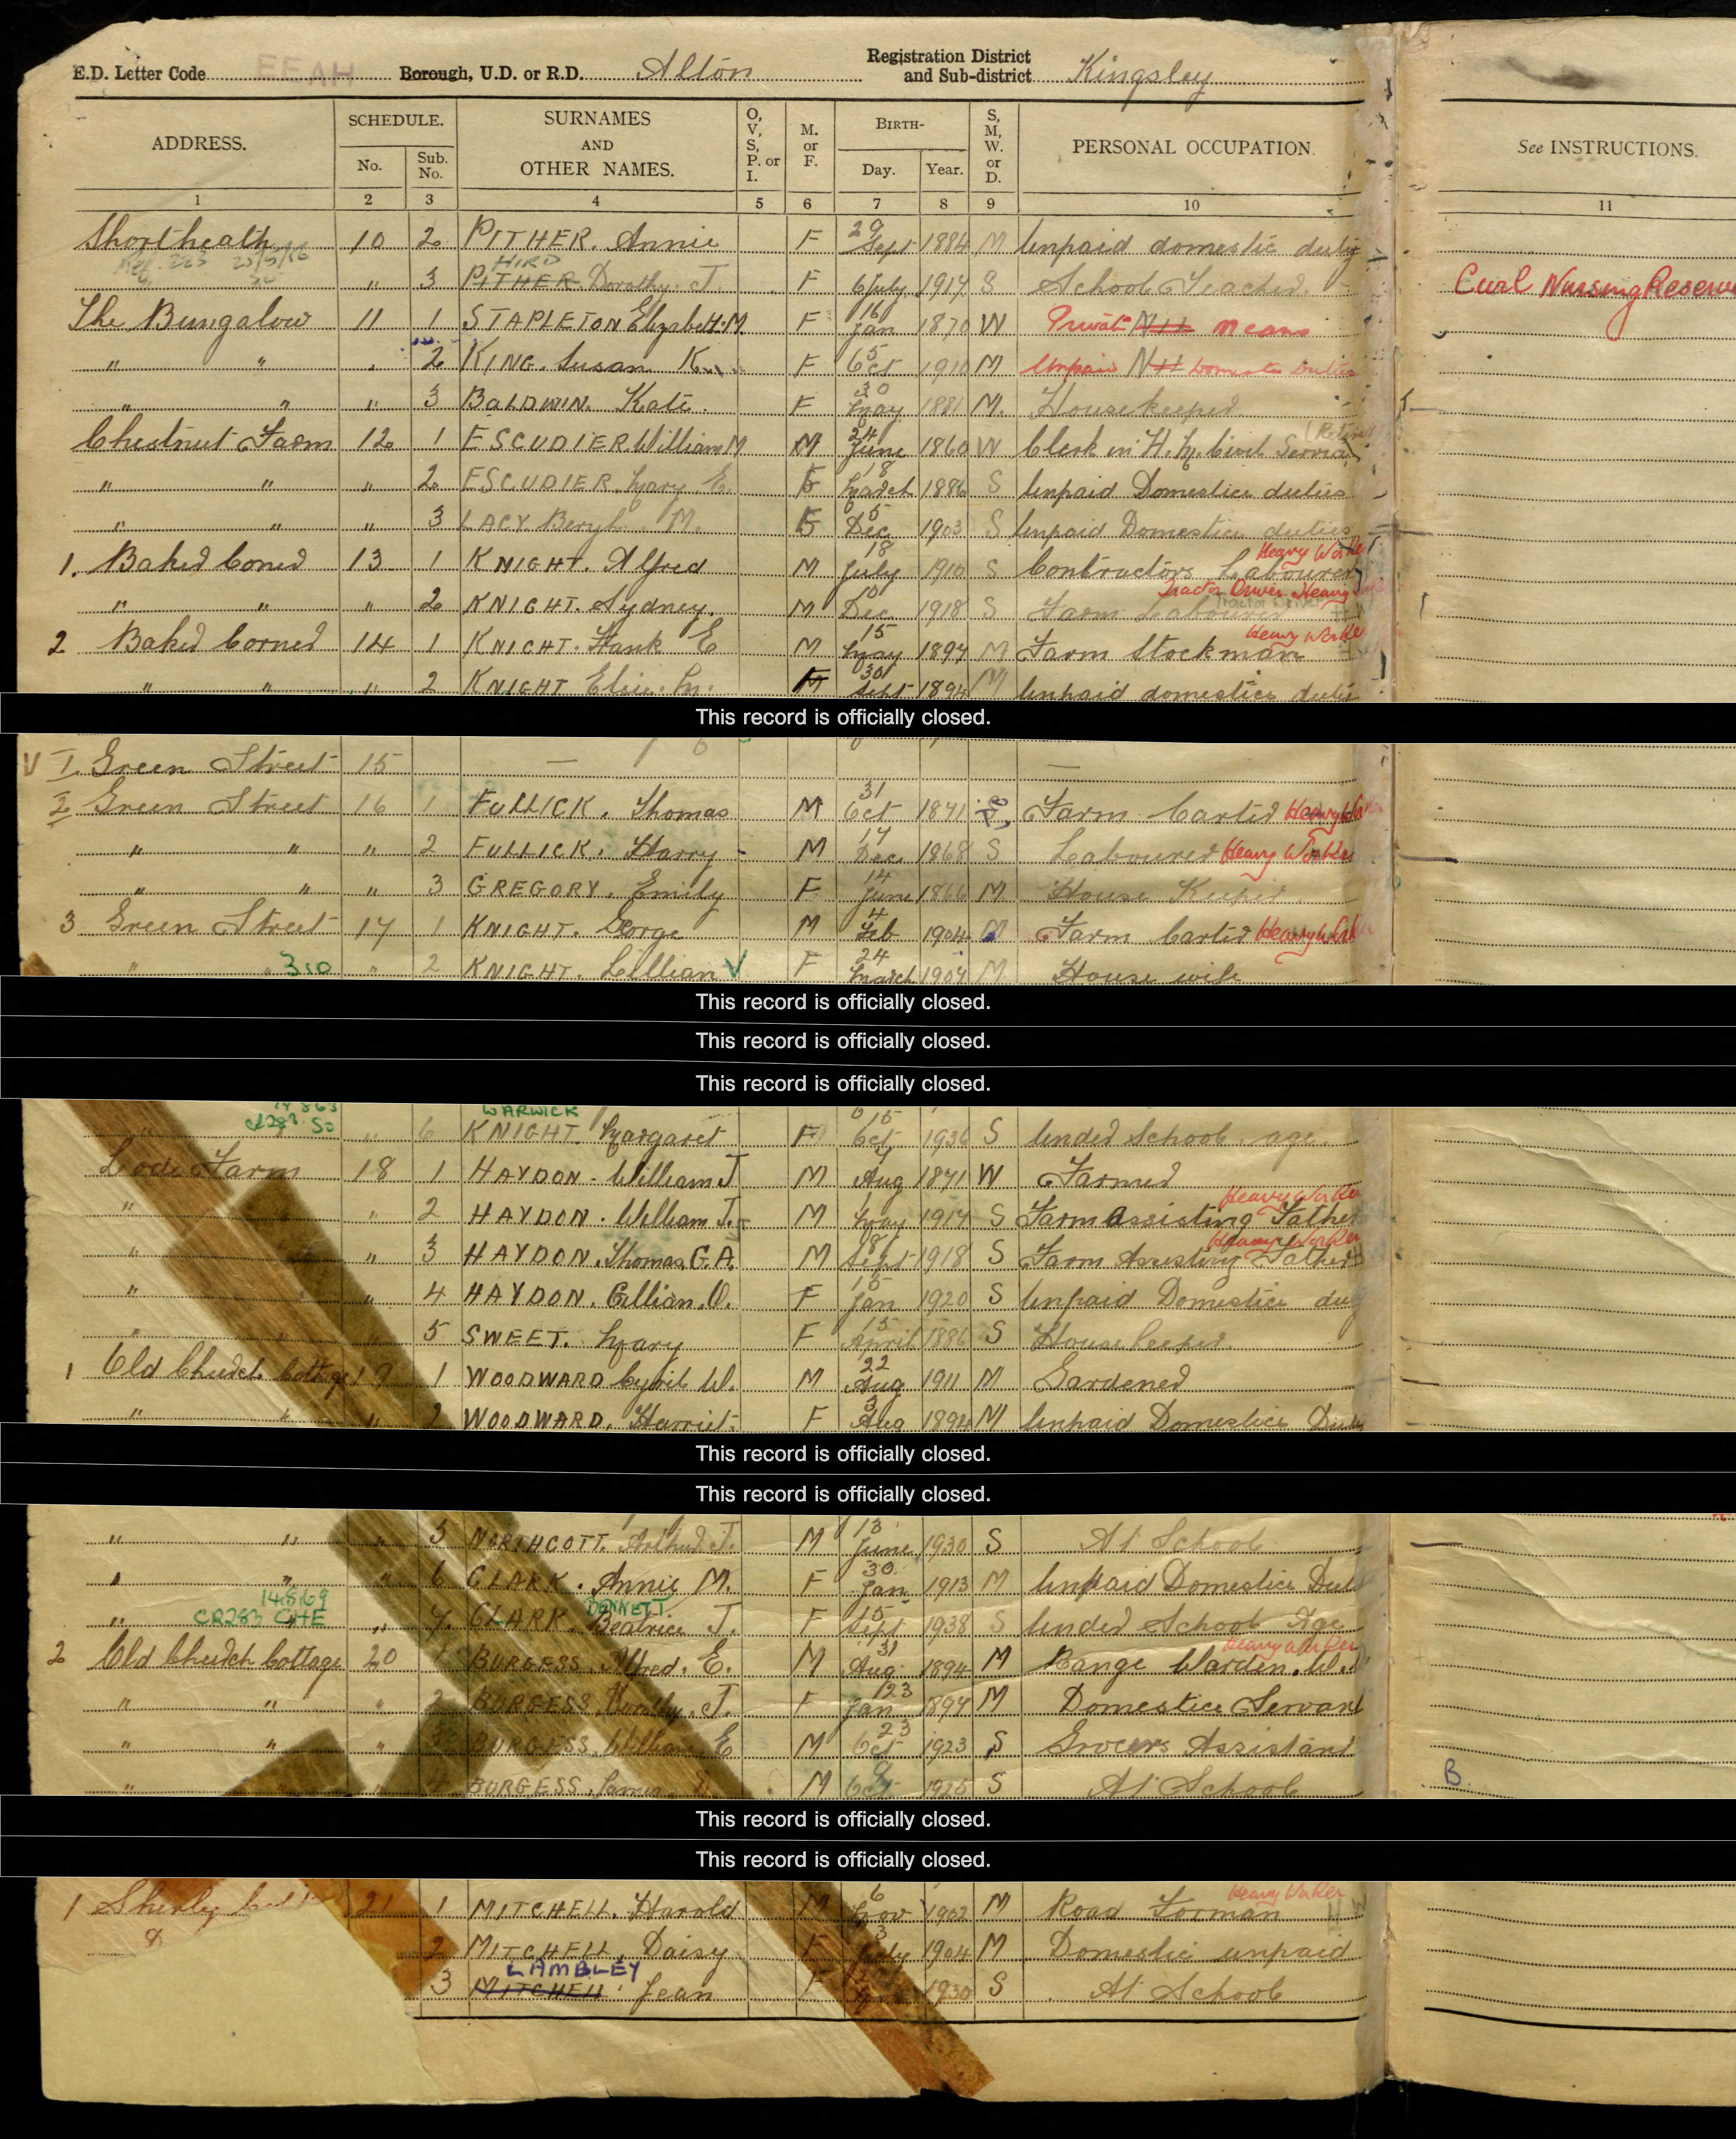 E.D. Letter Code EEAH Borough, U.D. or R.D. Alton Registration District and Sub-district Kingsley
ADDRESS. SCHEDULE. No. Sub. No. SURNAMES AND OTHER NAMES. O, V, S, P. or I. M. or F. BIRTH- Day. Year. S, M, W. or D. PERSONAL OCCUPATION. See INSTRUCTIONS.
1 2 3 4 5 6 7 8 9 10 11
Shortheath 10 2 PITHER. Annie F 29 Sept 1884 M Unpaid domestic duty
HIRD
" 3 PITHER Dorothy. J. F 6 July 1917 S School Teacher. Civil Nursing Reserve
The Bungalow 11 1 STAPLETON Elizabeth. M. F 16 Jan 1870 W Private means
" " " 2 KING. Susan K. F 5 Oct 1910 M Unpaid Domestic Duties
" " " 3 BALDWIN. Kate. F 30 May 1881 M. Housekeeper
Chestnut Farm 12 1 ESCUDIER. William M M 24 June 1860 W Clerk in H.M. Civil Service (Retired)
" " " 2 ESCUDIER Mary. E. F 18 March 1886 S Unpaid Domestic duties
" " " 3 LACY Beryl. M. F 5 Dec 1903 S Unpaid Domestic duties
1. Baker Corner 13 1 KNIGHT. Alfred M 18 July 1910 S Contractors Labourer Heavy Worker
" " " 2 KNIGHT. Sydney. M 10 Dec 1918 S Farm Labourer Tractor Driver Heavy
2 Baker Corner 14 1 KNIGHT. Frank E M 15 May 1897 M Farm Stockman Heavy Worker
" " " 2 KNIGHT Elsie. M. F 30 Sept 1894 M Unpaid domestic duties
This record is officially closed.
V 1. Green Street 15 — —
2 Green Street 16 1 FULLICK. Thomas M 31 Oct 1871 Farm Carter Heavy Worker
" " " 2 FULLICK. Harry M 17 Dec 1868 S Labourer Heavy Worker
" " " 3 GREGORY. Emily F 14 June 1866 M House Keeper
3 Green Street 17 1 KNIGHT. George M 4 Feb 1904 M Farm Carter Heavy Worker
" " " 2 KNIGHT. Lillian V F 24 March 1907 M House wife
This record is officially closed.
This record is officially closed.
This record is officially closed.
WARWICK
" 6 KNIGHT. Margaret F 15 Oct 1936 S Under School age
Lode Farm 18 1 HAYDON. William J M Aug 1871 W Farmer
" " 2 HAYDON. William J. M May 1917 S Farm assisting Father Heavy Worker
" " 3 HAYDON. Thomas. G. A. M 18 Sept 1918 S Farm Assisting Father Heavy Worker
" " 4 HAYDON. Gillian. O. F 15 Jan 1920 S Unpaid Domestic duty
" 5 SWEET. Mary F 15 April 1886 S Housekeeper
1 Old Church Cottage 19 1 WOODWARD Cyril W. M 22 Aug 1911 M Gardener
" " " 2 WOODWARD. Harriet. F 3 Aug 1894 M Unpaid Domestic Duty
This record is officially closed.
This record is officially closed.
" " " 5 NORTHCOTT. Arthur J. M 13 June 1930 S At School
" " " 6 CLARK. Annie M. F 30 Jan 1913 M Unpaid Domestic Dut
14.8.69 BENNETT
" CR283 CHE " 7. CLARK. Beatrice J. F 15 Sept 1938 S Under School Age
2 Old Church Cottage 20 1 BURGESS. Alfred. E. M 31 Aug 1894 M Range Warden. W. Heavy Worker
" " " 2 BURGESS. J. F 23 Jan 1897 M Domestic Servant
" " " 3 BURGESS. William E M 23 Oct 1923 S Grocers Assistant
" " 4 BURGESS. M 9 Oct 1925 S At School B
This record is officially closed.
This record is officially closed.
1 21 1 MITCHELL. Harold M 6 Nov 1902 M Road Forman Heavy Worker
2 MITCHELL. Daisy F 3 July 1904 M Domestic unpaid
LAMBLEY
3 MITCHELL. Jean F 1930 S At School